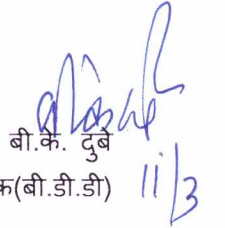 बी.के. दुबे
क(बी.डी.डी)
11/3